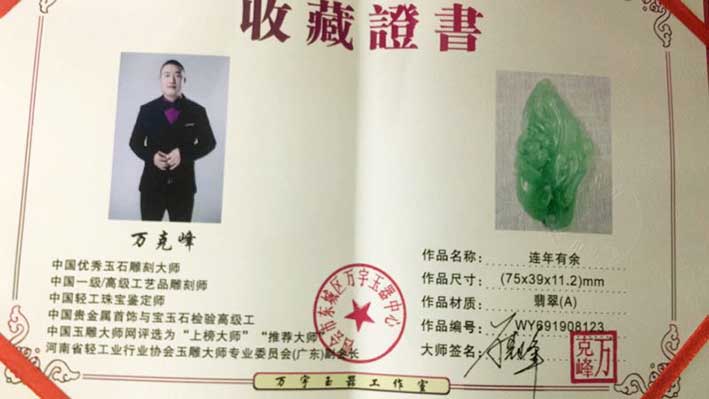 收藏證書
万克峰
中国优秀玉石雕刻大师
中国一级/高级工艺品雕刻师
中国轻工珠宝鉴定师
中国贵金属首饰与宝玉石检验高级工
中国玉雕大师网评选为“上榜大师”“推荐大师”
河南省轻工业行业协会玉雕大师专业委员会(广东)副会长
会市东城区万字玉器中心
作品名称： 连年有余
作品尺寸： (75x39x11.2)mm
作品材质： 翡翠(A)
作品编号： WY691908123
大师签名：
万克峰
万字玉器工作室